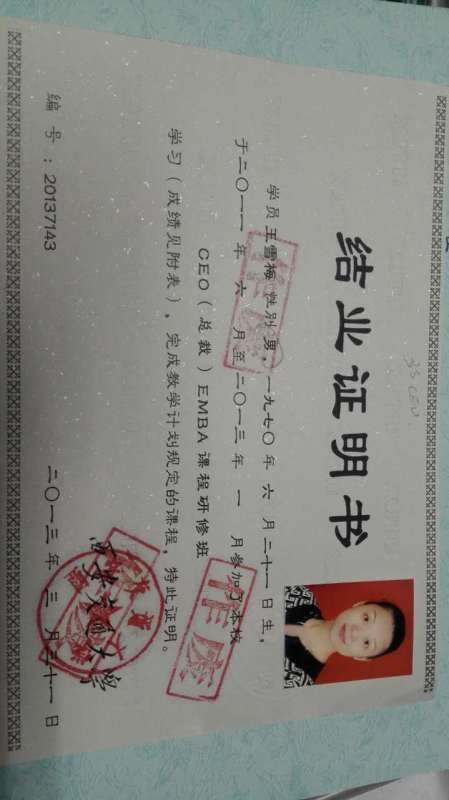 结业证明书
学员王雪梅 性别 男，一九七〇年 六 月 二十一 日生，
于二〇一一 年 六 月至 二〇一三年 一 月参加了本校
CEO（总裁）EMBA课程研修班
学习（成绩见附表），完成教学计划规定的课程，特此证明。
西安交通大学
二〇一三年 三 月 三十一 日
编号：20137143
作废
作废